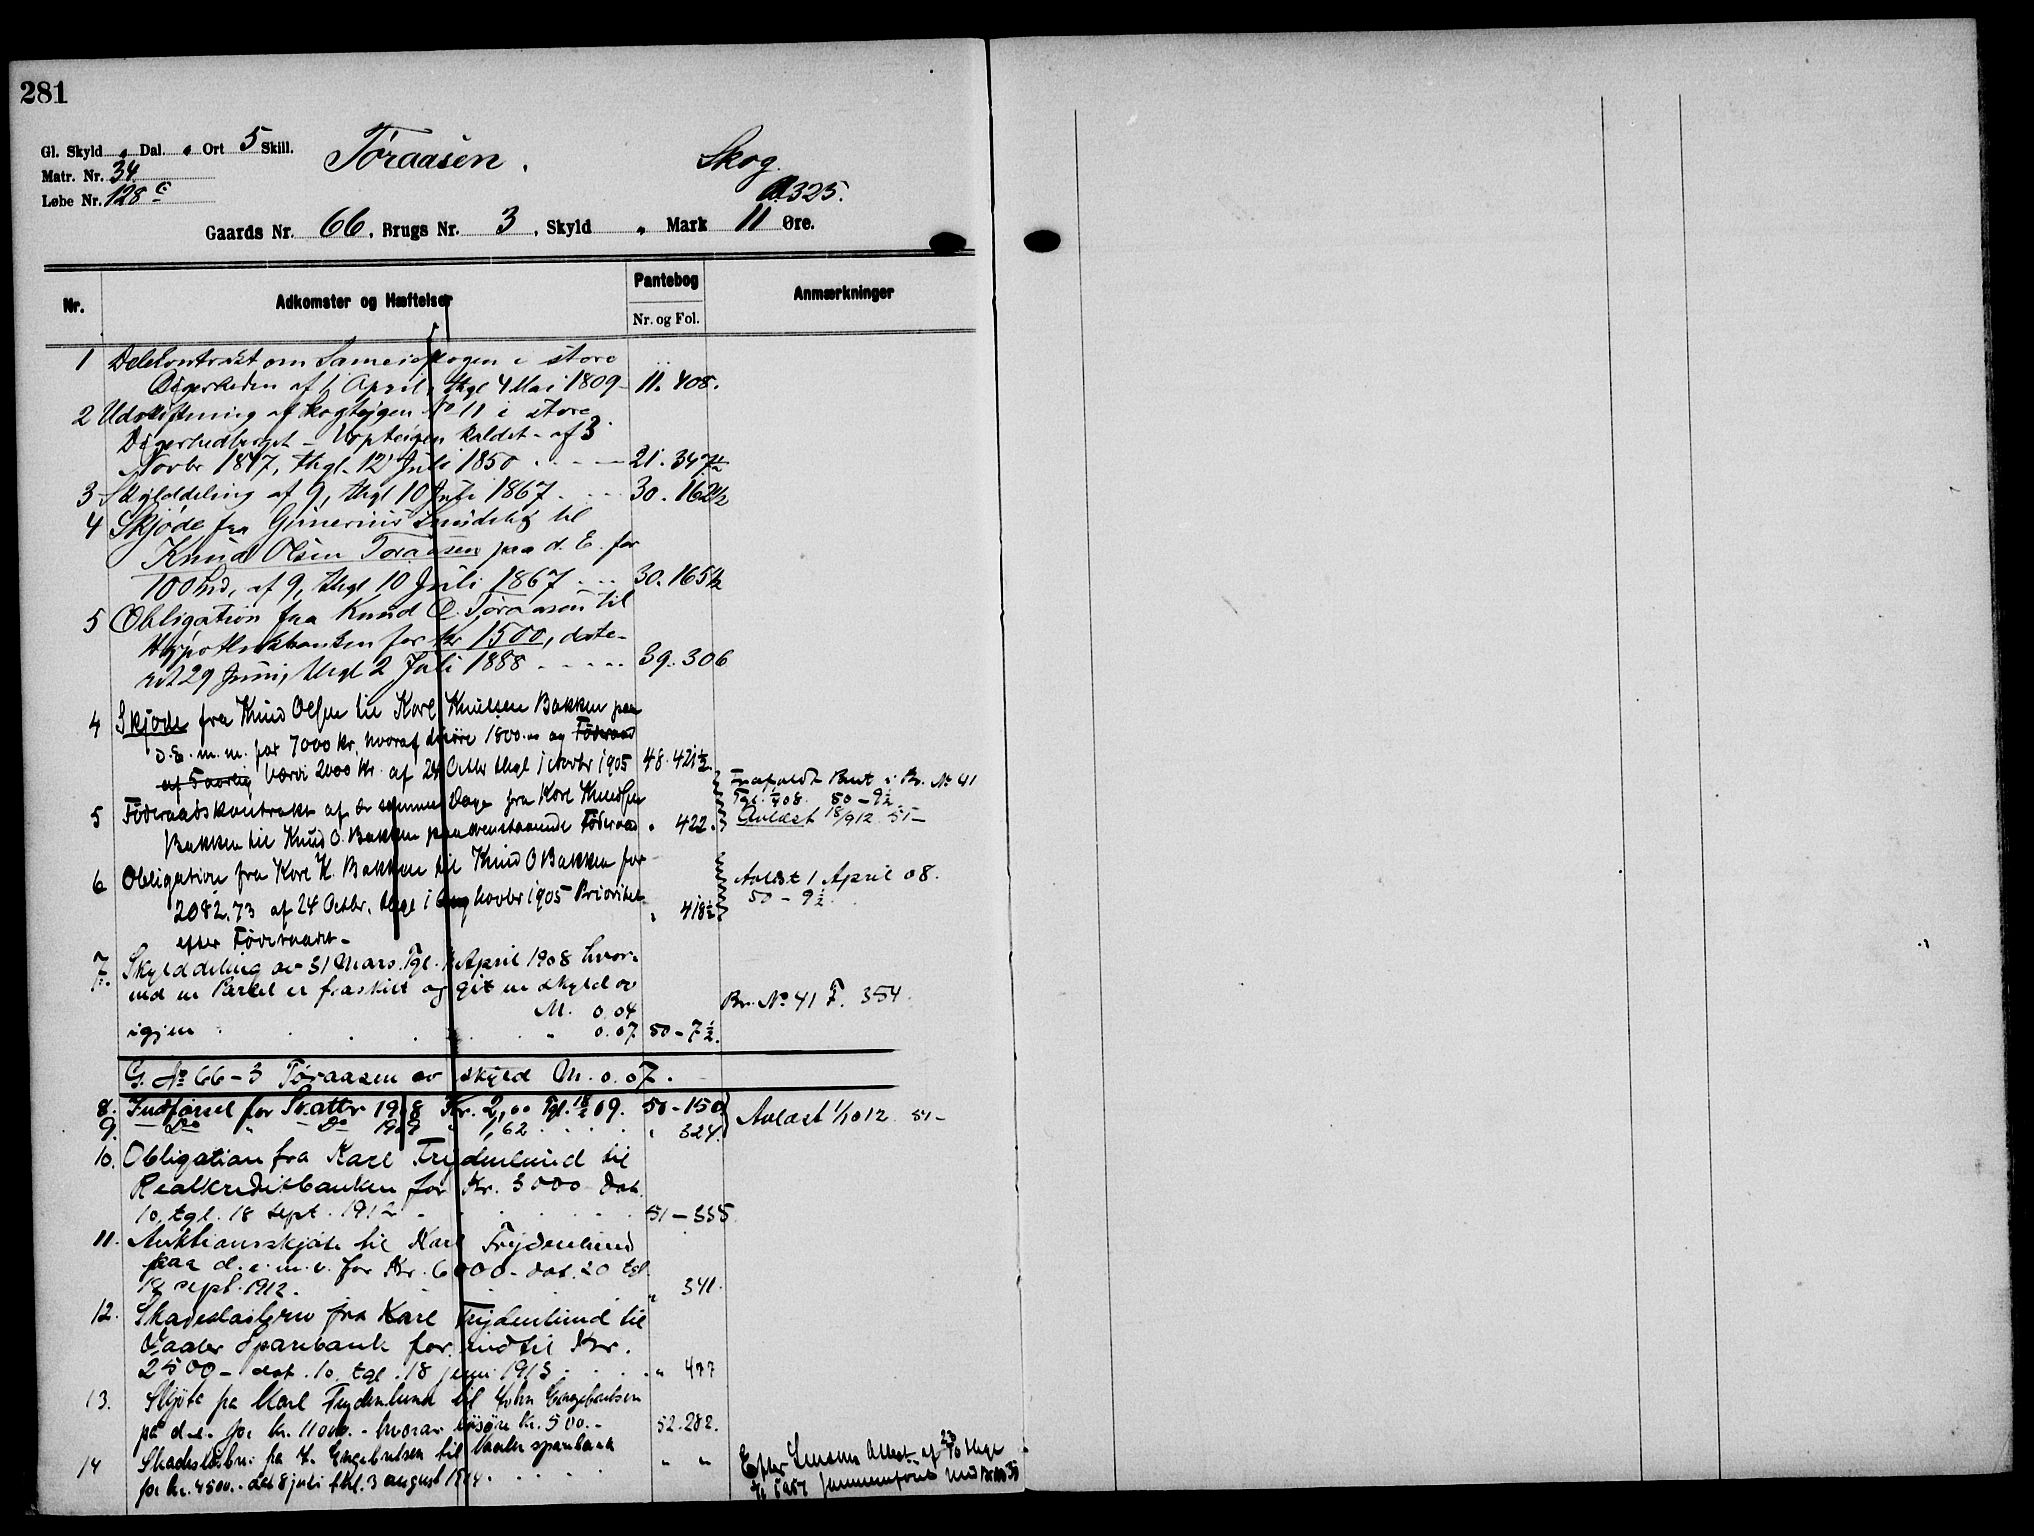 281
Gl. Skyld „ Dal. „ Ort 5 Skill.
Matr. Nr. 34
Løbe Nr. 128 c
Tøraasen.
Skog.
a 325.
Gaards Nr. 66, Brugs Nr. 3, Skyld „ Mark 11 Øre.
Nr.
Adkomster og Hæftelser
Pantebog
Nr. og Fol.
Anmærkninger
1 Delekontrakt om Sameieskogen i store
af 1 April, thgl 4 Mai 1809 - 11. 408.
2 Udskiftning af Skogteigen No 11 i store
kaldet - af 3
Novbr 1847, thgl. 12 Juli 1850 21. 347 1/2
3 Skylddeling af 9, thgl 10 Juli 1867 30. 162 1/2
4 Skjøde fra til
Knud Olsen Tøraasen paa d. E. for
100 af 9, thgl 10 Juli 1867 30. 165 1/2
5 Obligation fra Knud O. Tøraasen til
Hypothekbanken for Kr 1500, date-
ret 29 Juni, thgl 2 Juli 1888 39. 306
4 Skjøde fra Knud Olsen til Karl Knutsen Bakken paa
d. E. m. m. for 7000 Kr. hvoraf løsøre 1800 og Føderaad
af 5 aarlig Værdi 2000 Kr. af 24 Octbr thgl 1 Novbr 1905 48. 421 1/2
5 Føderaadskontrakt af samme Dage fra Karl Knudsen
Bakken til Knud O. Bakken paa ovenstaaende Føderaad „ 422.
Frafaldt Pant i Br. No 41
50 - 9 1/2
Avlæst 18/9 12 51 -
6 Obligation fra Karl K. Bakken til Knud O Bakken for
2082.73 af 24 Octbr. thgl 1 Novbr 1905 Prioritet
efter Føderaadet - „ 418 1/2
Avlæst 1 April 08.
50 - 9 1/2
7. Skylddeling av 31 Mars. Tgl. 1 April 1908 hvor-
ved en Parcel er fraskilt og git en skyld av
M. 0.04
igjen „ 0.07 50 - 7 1/2.
Br. No 41 F. 354.
G. No 66 - 3 Tøraasen av skyld M. 0.07.
8. Indførsel for Skatter 1908 Kr. 2,00 Tgl. 09. 50 - 150
9. Do „ Do 1909 „ 1,62 „ 324.
Avlæst 1/10 12 51 -
10. Obligation fra Karl Frydenlund til
Realkreditbanken for Kr. 3000 - dat.
10, tgl. 18 sept. 1912 51 - 335.
11. Auktionsskjøte til Karl Frydenlund
paa d. e. m. v. for Kr. 6000 - dat. 20 tgl.
18 sept. 1912. „ 341.
12. Skadesløsbrev fra Karl Frydenlund til
Vaaler Sparebank for indtil Kr.
2500 - dat. 10, tgl. 18 juni 1913 „ 477
13. Skjøte fra Karl Frydenlund til John Engebretsen
på d. e. for kr. 11000. - hvorav løsøre kr. 500. - 52. 282.
14 Skadesløsbr. fra J. Engebretsen til Vaaler sparebank
for kr. 4500. - dat 8 juli thl. 3 august 1914. „ „
Efter Attest af thgl
sammenføiet med Br No